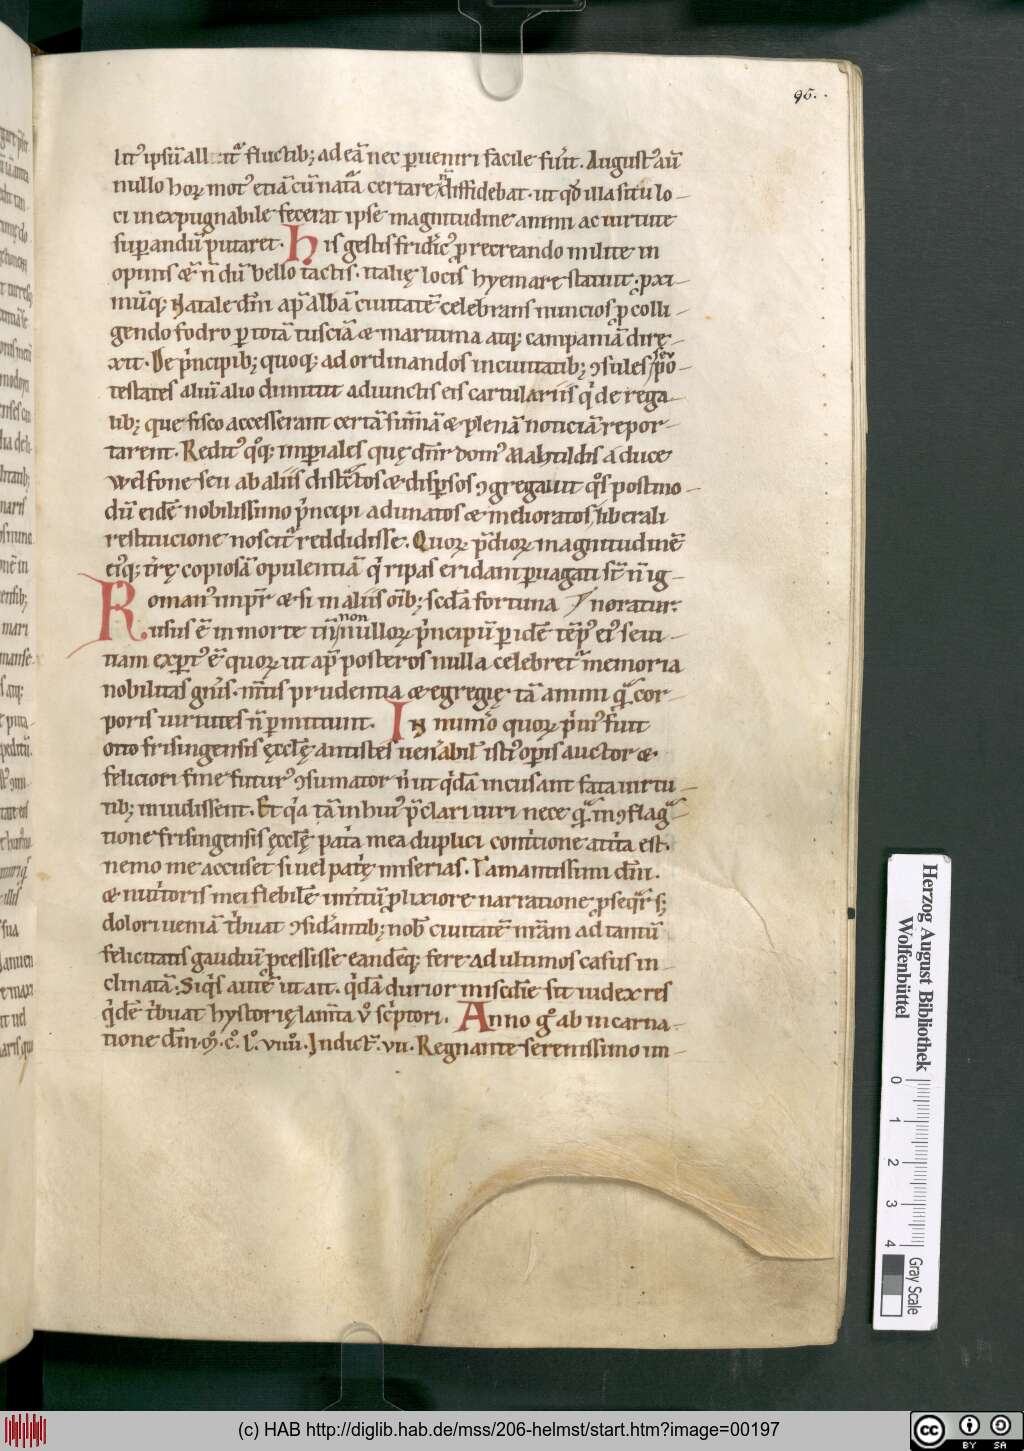 95.
lit᷒ ipsū all tᷓ fluctib; ad eā nec ꝑueniri facile fuit. August᷒ aū
nullo hoꝝ mot᷒ etiā cū natᷓa certare n̄ diffidebat. ut qd̄ illa situ lo-
ci inexpugnabile fecerat ipse magnitudine animi ac uirtute
suꝑandū putaret. His gestis frideric᷒ ꝓ recreando milite in
opimis & n̄ dū bello tactis. italię locis hyemare statuit. ꝓxi-
mūq; Natale dn̄i ap̄ albā ciuitatē celebrans nuncios ꝓ colli-
gendo fodro ꝑ totā tusciā & maritima atq; campaniā dirę-
xit. De pͥncipib; quoq; ad ordinandos in ciuitatib; ꝯsules seu po-
testates aliū alio dimittit adiunctis eis cartulariis qͥ de rega-
lib; que fisco accesserant certā sum̄ā & plenā noticiā repor-
tarent. Redit᷒ qͦq; imꝑiales quę dn̄r dom᷒ Mahtildis a duce
welfone seu ab aliis distͣctos & disꝑsos ꝯgregauit qͦs postmo-
dū eidē nobilissimo pͥncipi adunatos & melioratos liberali
restitucione noscitᷓ reddidisse. Quoꝝ p̄dioꝝ magnitudinē
ei᷒q; tr̄ę copiosā opulentiā qͥ ripas eridani ꝑuagati st̄ n̄ ig-
Roman᷒ imp̄r & si in aliis oīb; sc̄dā fortunā noratur.
risus ē in morte tn̄ nonnulloꝝ pͥncipū ꝑ idē temp᷒ ei᷒ seui-
tiam expert᷒ ē quoꝝ ut ap̄ posteros nulla celebretᷓ memoria
nobilitas gn̄is. mn̄tis prudentia & egregię tā animi qᷓ cor-
poris uirtutes n̄ ꝑmittunt. In numͦo quoꝝ pͥm᷒ fuit
otto frisingensis ęcclę antistes uenͣabil᷒ isti᷒ oꝑis auctor &
feliciori fine futur᷒ ꝯsumator nͥ ut qͥdā incusant fata uirtu-
tib; inuidissent. Et qͥa tā in hui᷒ p̄clari uiri nece qᷓ in ꝯflagᷓ-
tione frisingensis ęcclę patͥa mea duplici contͥtione attͥta est.
nemo me accuset si uel patͥę miserias. ł amantissimi dn̄i.
& nutͥtoris mei flebilē intͥtū ꝓlixiore narratione ꝓseqᷓr s;
dolori ueniā tͥbuat ꝯsidͣantib; nob̄ ciuitatē nr̄am ad tantū
felicitatis gaudiū ꝓcessisse eandēq; fere ad ultimos casus in-
clinatā. Siqͥs autē ut ait. qͥdā durior miscdīe sit iudex res
qͥdē tͥbuat hystorię lam̄ta ỻ scͥptori. Anno gͦ ab incarna-
tione dn̄i. m̊. c̊. l̊. viiii. Indict᷒. vii. Regnante serenissimo im-
Herzog August Bibliothek
Wolfenbüttel
0 1 2 3 4
Gray Scale
(c) HAB http://diglib.hab.de/mss/206-helmst/start.htm?image=00197
cc BY SA